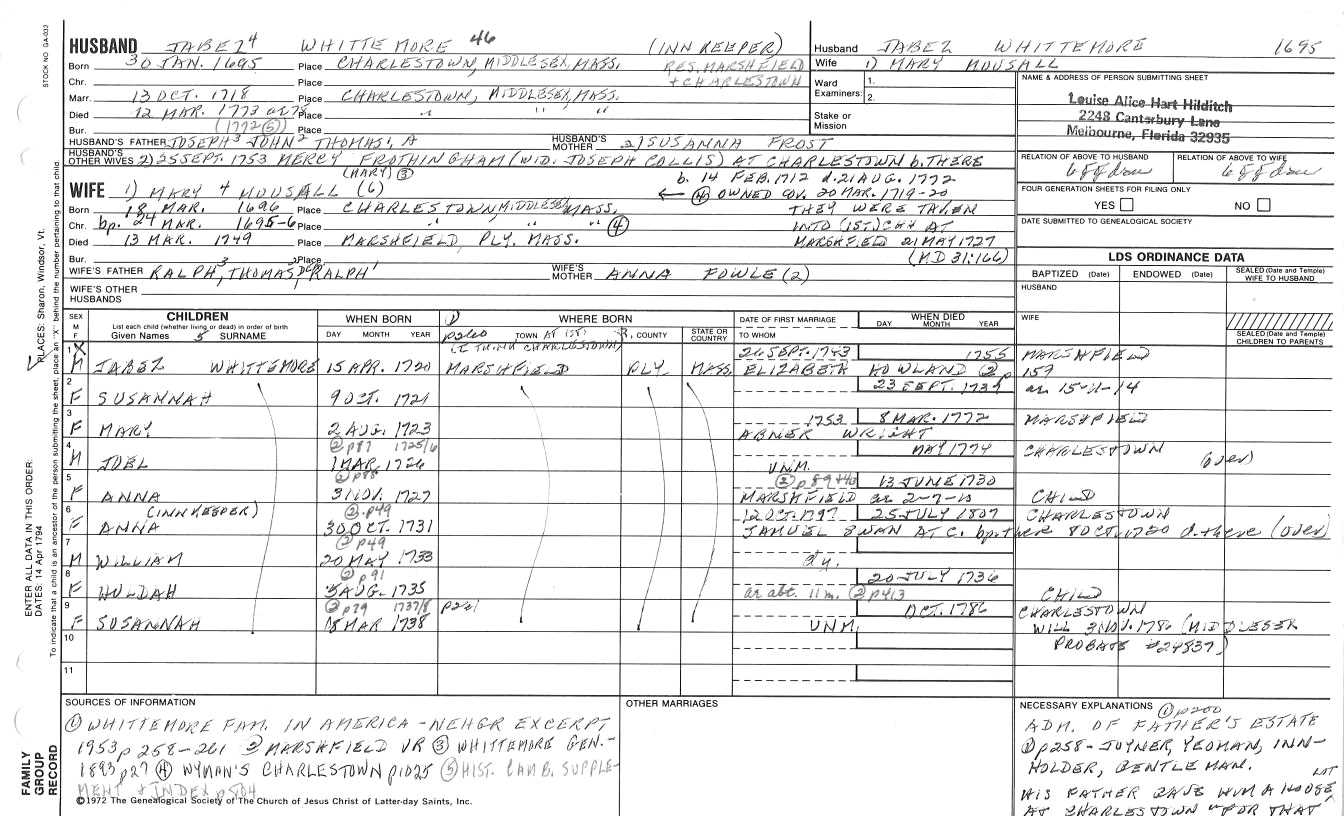 STOCK NO GA-033
HUSBAND JABEZ 4 WHITTEMORE 46 (INN KEEPER)
Husband JABEZ WHITTEMORE 1695
Born 30 JAN. 1695 Place CHARLESTOWN, MIDDLESEX, MASS. RES. MARSHFIELD
Wife 1) MARY MOUSALL
Chr. Place + CHARLESTOWN
Ward Examiners: 1. 2.
NAME & ADDRESS OF PERSON SUBMITTING SHEET
Louise Alice Hart Hilditch
2248 Canterbury Lane
Melbourne, Florida 32935
Marr. 13 OCT. 1718 Place CHARLESTOWN, MIDDLESEX, MASS.
Died 12 MAR. 1773 Place " " "
Stake or Mission
Bur. (1772 (5)) Place
HUSBAND'S FATHER JOSEPH 3 JOHN 2 THOMAS 1, A HUSBAND'S MOTHER 2) SUSANNA FROST
HUSBAND'S OTHER WIVES 2) 25 SEPT. 1753 MERCY FROTHINGHAM (WID. JOSEPH COLLIS) AT CHARLESTOWN b. THERE
RELATION OF ABOVE TO HUSBAND RELATION OF ABOVE TO WIFE
6 g g dau 6 g g dau
(MARY) (3) b. 14 FEB. 1712 d. 21 AUG. 1772
WIFE 1) MARY 4 MOUSALL (6) ← (4) OWNED COV. 20 MAR. 1719-20
FOUR GENERATION SHEETS FOR FILING ONLY
YES NO
Born 18 MAR. 1696 Place CHARLESTOWN MIDDLESEX MASS. THEY WERE TAKEN
Chr. bp. 24 MAR. 1695-6 Place " " " (4) INTO (1ST) CHH AT
DATE SUBMITTED TO GENEALOGICAL SOCIETY
Died 13 MAR. 1749 Place MARSHFIELD, PLY. MASS. MARSHFIELD 21 MAY 1727
Bur. Place (MD 31:166)
LDS ORDINANCE DATA
WIFE'S FATHER RALPH 3, THOMAS 2, RALPH 1 WIFE'S MOTHER ANNA FOWLE (2)
BAPTIZED (Date) ENDOWED (Date) SEALED (Date and Temple) WIFE TO HUSBAND
WIFE'S OTHER HUSBANDS
HUSBAND
SEX M F CHILDREN WHEN BORN WHERE BORN DATE OF FIRST MARRIAGE WHEN DIED
WIFE
List each child (whether living or dead) in order of birth
Given Names 5 SURNAME DAY MONTH YEAR p260 TOWN COUNTY STATE OR COUNTRY TO WHOM DAY MONTH YEAR
SEALED (Date and Temple) CHILDREN TO PARENTS
(I THINK CHARLESTOWN)
1 X M JABEZ WHITTEMORE 15 APR. 1720 MARSHFIELD PLY MASS. 1755 MARSHFIELD
ELIZABETH HOWLAND (2) p 159
2 F SUSANNAH 9 OCT. 1721 23 SEPT. 1739 ae 15-11-14
3 F MARY 2 AUG. 1723 1753 8 MAR. 1772 MARSHFIELD
ABNER WRIGHT
4 M JOEL (2) p87 1725/6 1 MAR. 1726 UNM. MAY 1774 CHARLESTOWN (over)
5 F ANNA (2) p88 3 NOV. 1727 13 JUNE 1730 CHILD
MARSHFIELD ae 2-7-10
6 (INNKEEPER) F ANNA (2) p49 30 OCT. 1731 12 OCT. 1797 25 JULY 1807 CHARLESTOWN
SAMUEL SWAN AT C. bp. there 8 OCT. 1720 d. there (over)
7 M WILLIAM (2) p49 20 MAY 1733 d.y.
8 F HULDAH (2) p91 5 AUG. 1735 20 JULY 1736 CHILD
ae abt. 11 m. (2) p413
9 F SUSANNAH (2) p29 1737/8 p261 18 MAR 1738 UNM. OCT. 1786 CHARLESTOWN
WILL 3 NOV. 1786 (MIDDLESEX
10 PROBATE #24837)
11
SOURCES OF INFORMATION
(1) WHITTEMORE FAM. IN AMERICA - NEHGR EXCERPT
1953 p 258-261 (2) MARSHFIELD VR (3) WHITTEMORE GEN.-
1893 p27 (4) WYMAN'S CHARLESTOWN p1025 (5) HIST. CAMB. SUPPLE-
MENT + INDEX p804
©1972 The Genealogical Society of The Church of Jesus Christ of Latter-day Saints, Inc.
OTHER MARRIAGES
NECESSARY EXPLANATIONS (1) p200
ADM. OF FATHER'S ESTATE
(1) p258 - JOYNER, YEOMAN, INN-
HOLDER, GENTLEMAN. LOT
HIS FATHER GAVE HIM A HOUSE
AT CHARLESTOWN "FOR THAT
FAMILY GROUP RECORD
ENTER ALL DATA IN THIS ORDER:
DATES: 14 Apr 1794
PLACES: Sharon, Windsor, Vt.
To indicate that a child is an ancestor of the person submitting the sheet, place an "X" behind the number pertaining to that child.